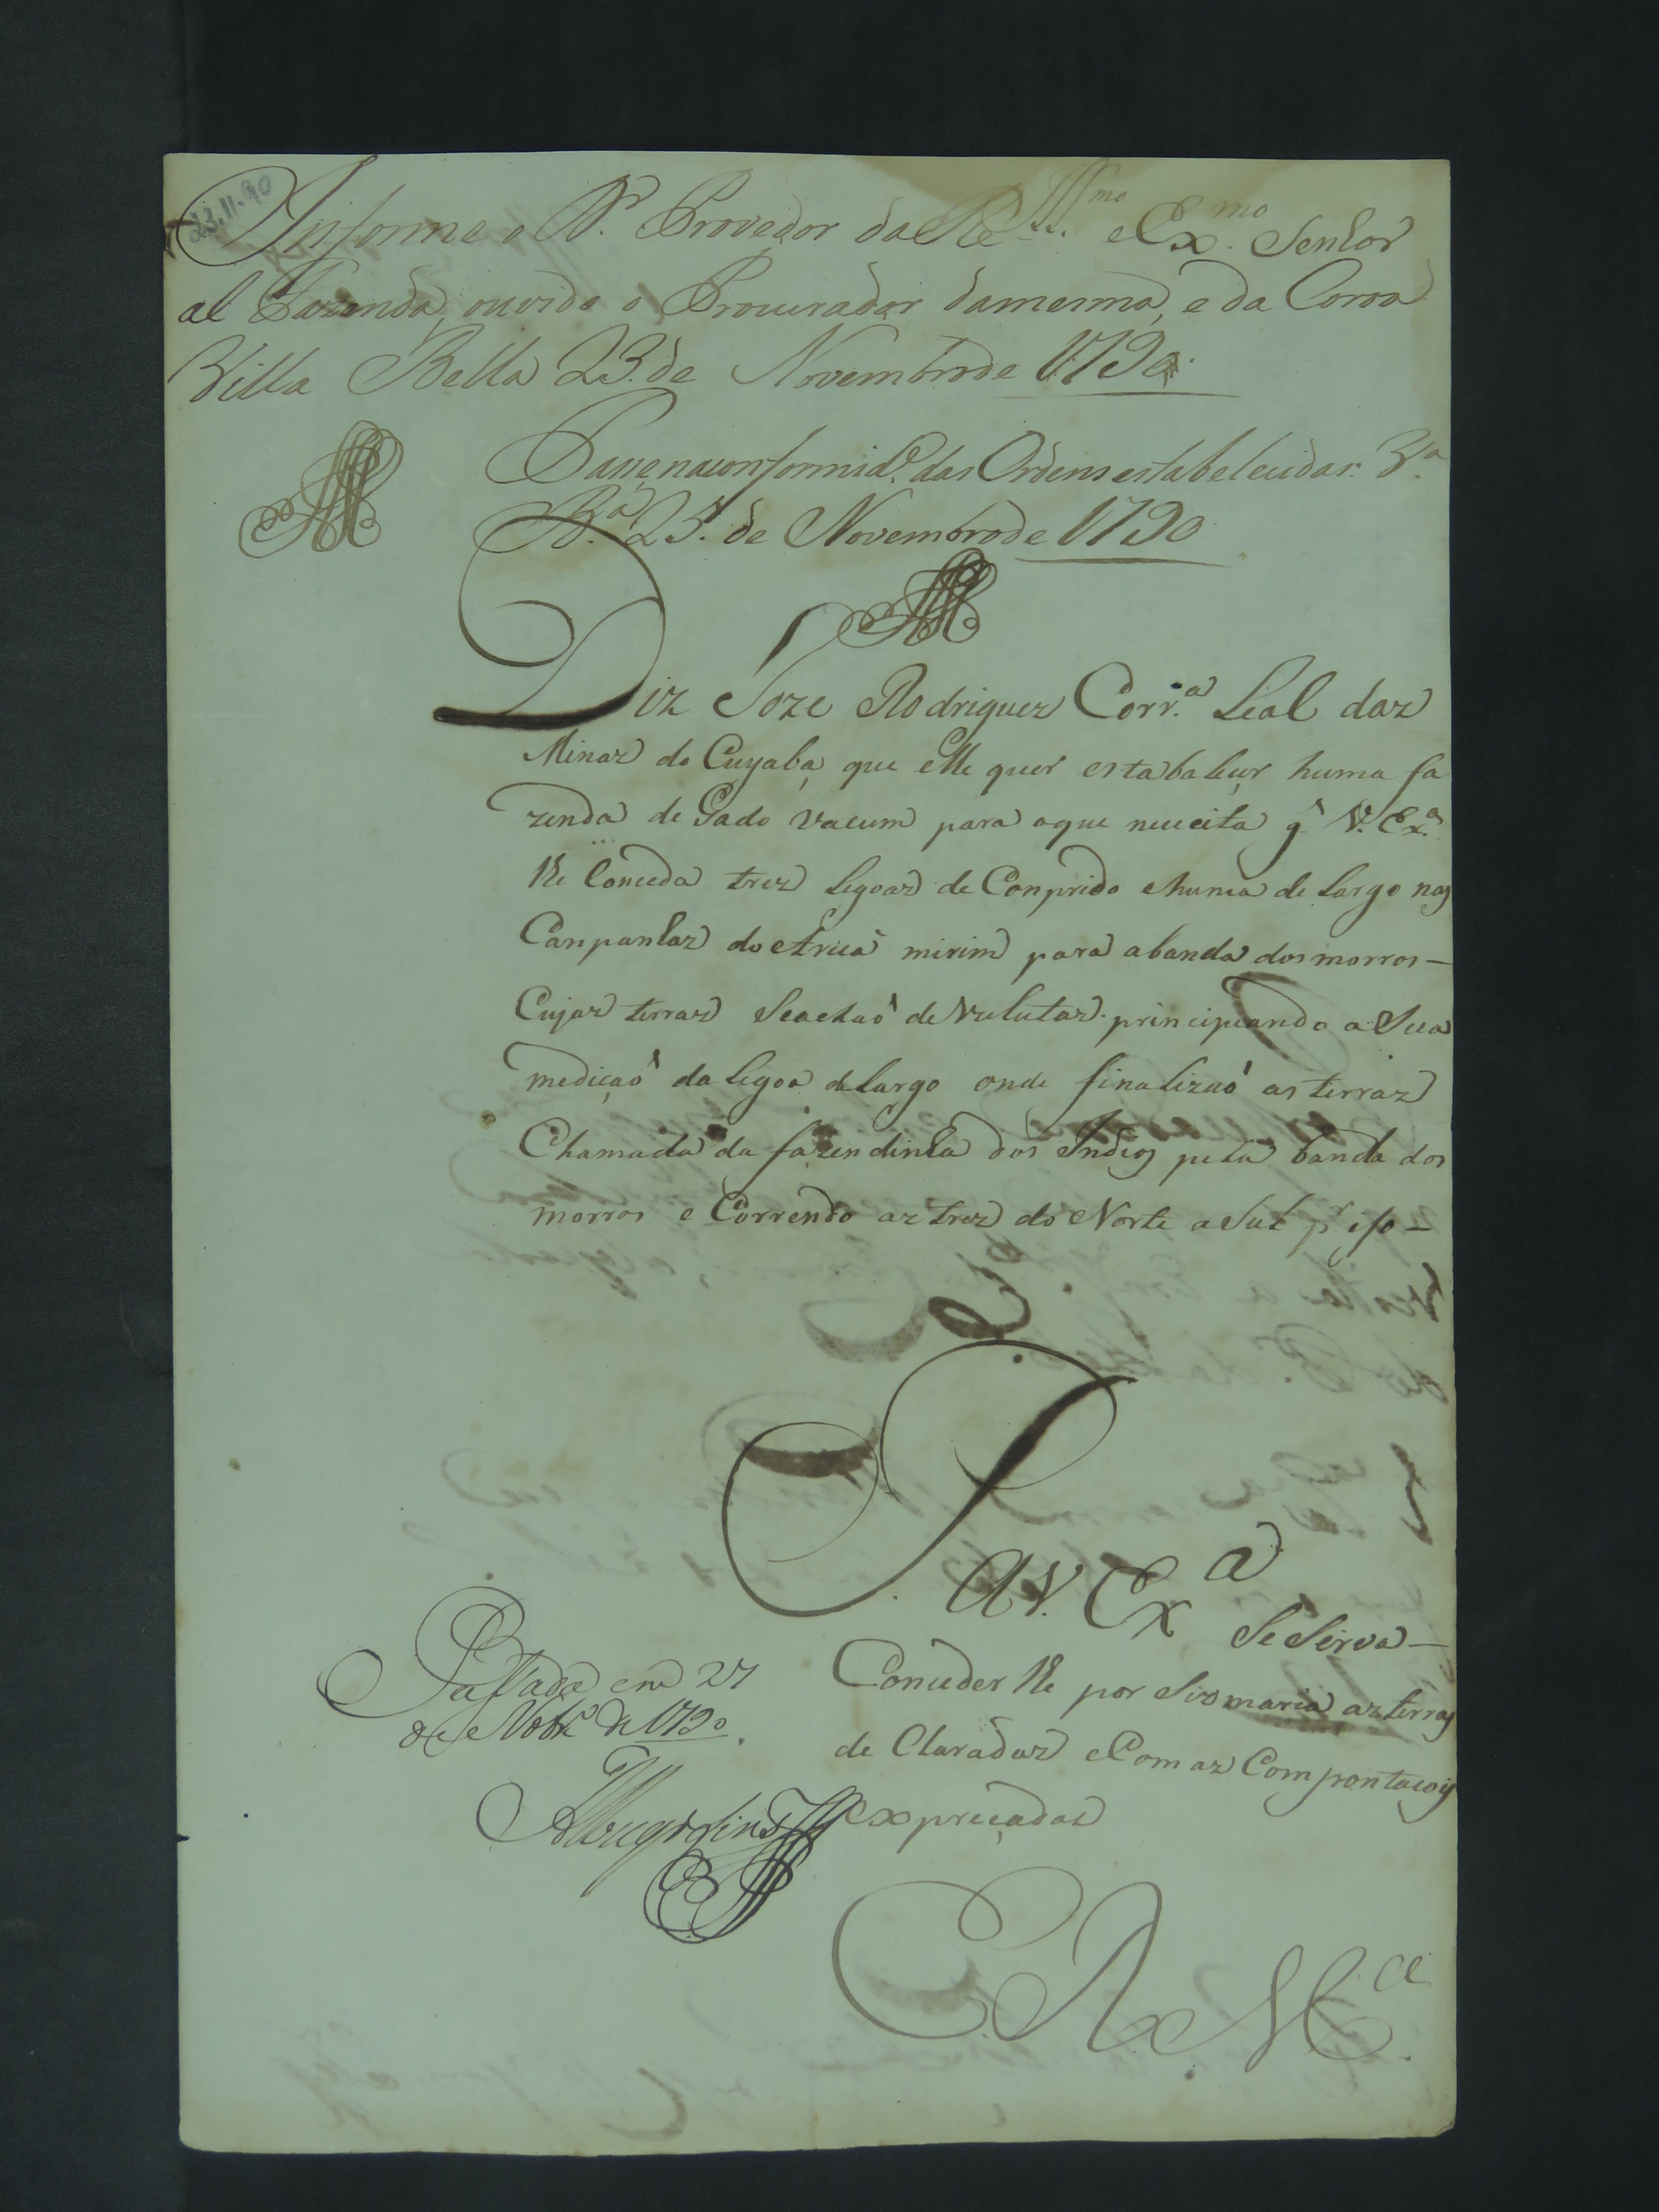 23.11.90
Informe o Dr. Provedor da Re Illmo. e Exmo. Senhor
al Fazenda, ouvido o Procurador da mesma, e da Coroa
Villa Bella 23. de Novembro de 1790.
Passe na conformide. das Ordens estabelecidas: Va.
Ba. 25. de Novembro de 1790
Diz Joze Rodriguez Corr.a Leal daz
Minaz do Cuyabá, que elle quer estabaleçer huma fa
zenda de Gado Vacum para oque neceçita q V. Ex.a
lhe Conceda trez Legoaz de Conprido e huma de Largo nas
Canpanhaz do Aricá mirim para abanda dos morros—
Cujaz terraz Seachaõ deVulutaz. principiando a Sua
mediçaõ da Legoa de Largo onde finalizaõ as terraz
Chamada da fazendinha dos Indios pela banda dos
morros e Correndo az trez do Norte a Sul pr. iso—
P.
AV. Exa
Se Sirva—
Conceder lhe por Sismaria az terras
de Claradaz e Com az Compontacois
expreçadas
Passada em 27
de Novbr.o de 1790.
E R Mce.